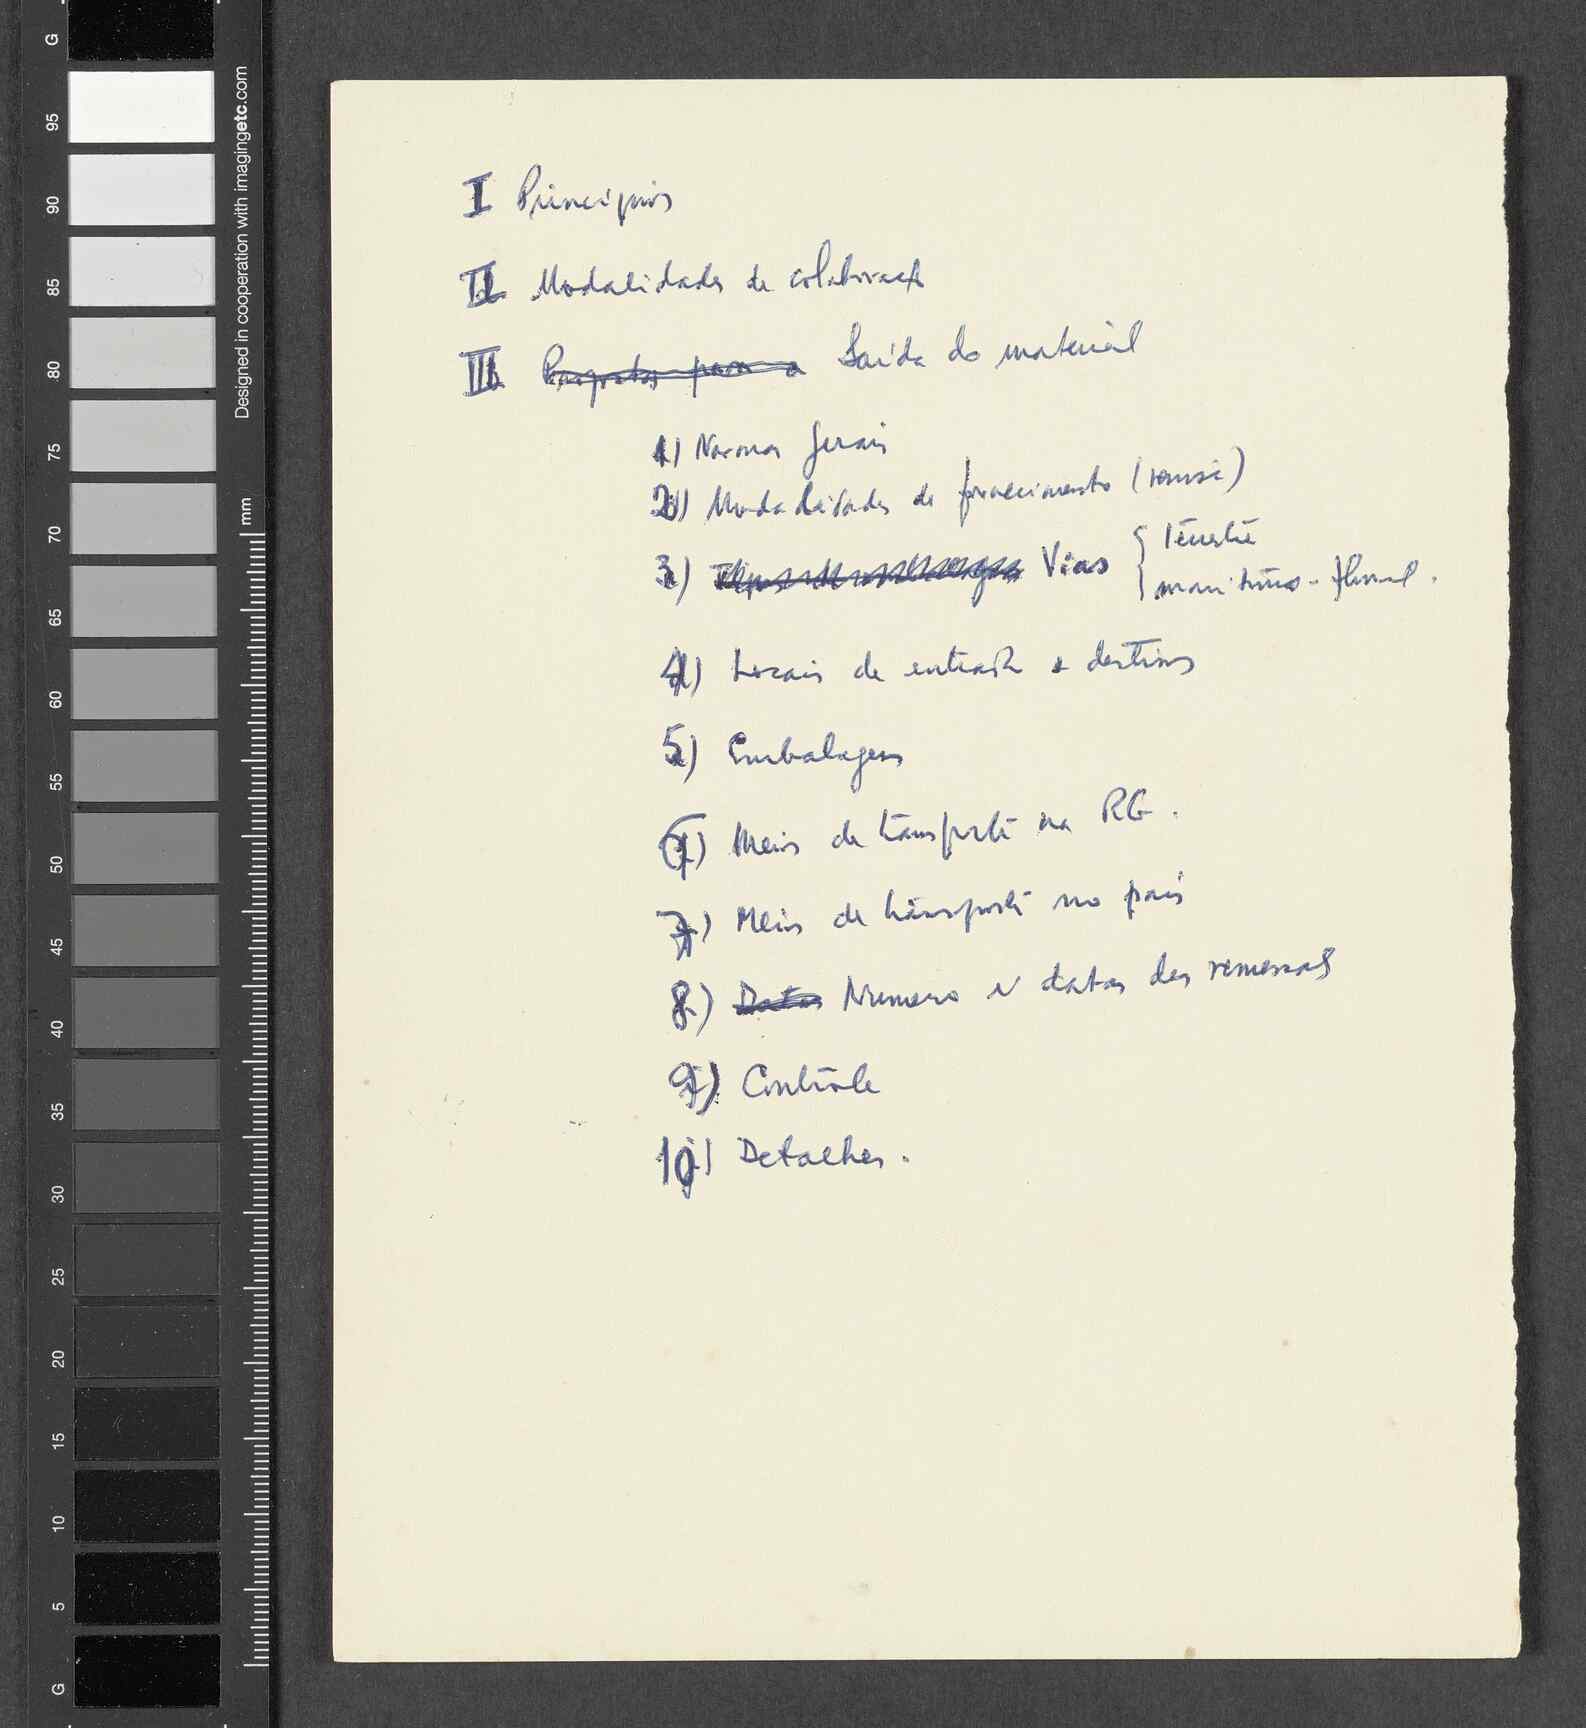 I Princípios
II Modalidades de colaboração
III Propostas para a Saída do material
1) Normas gerais
2) Modalidades de fornecimento (remise)
3) Vias { terrestre
marítimo-fluvial.
4) Locais de entrada e destinos
5) Embalagem
6) Meios de transporte na RG.
7) Meios de transporte no país
8) Datas Numero e datas das remessas
9) Contrôle
10) Detalhes.
G
95
90
85
80
75
70
65
60
55
50
45
40
35
30
25
20
15
10
5
G
Designed in cooperation with imagingetc.com
mm